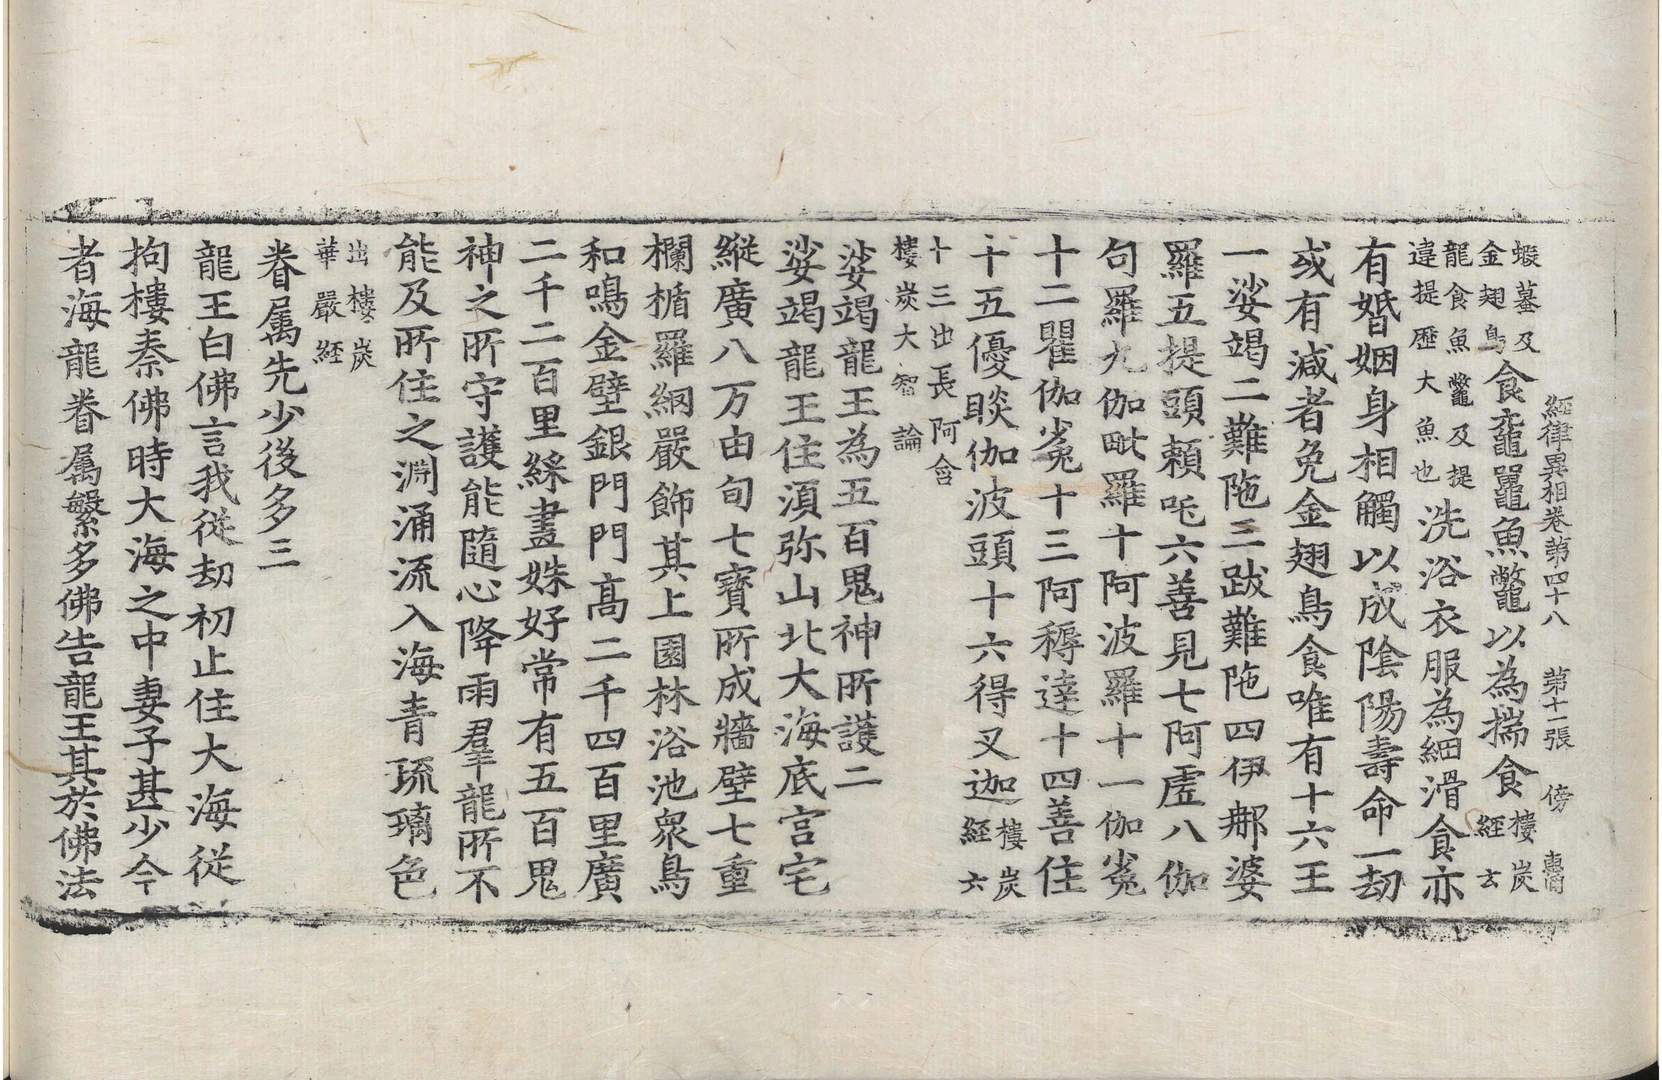 經律異相卷第四十八 第十一張 傍
蝦蟇及金翅鳥食黿鼉魚鼈以為揣食樓炭經云
龍食魚鼈及提違提歷大魚也洗浴衣服為細滑食亦
有婚姻身相觸以成陰陽壽命一劫
或有減者免金翅鳥食唯有十六王
一娑竭二難陁三跋難陁四伊郍婆
羅五提頭賴吒六善見七阿虗八伽
句羅九伽毗羅十阿波羅十一伽㝹
十二瞿伽㝹十三阿耨達十四善住
十五優睒伽波頭十六得叉迦樓炭經六
十三出長阿含樓炭大智論
娑竭龍王為五百鬼神所護二
娑竭龍王住湏弥山北大海底宫宅
縱廣八万由旬七寶所成牆壁七重
欄楯羅網嚴飾其上園林浴池衆鳥
和鳴金壁銀門門髙二千四百里廣
二千二百里綵畫姝好常有五百鬼
神之所守護能隨心降雨羣龍所不
能及所住之淵涌流入海青琉璃色
出樓炭華嚴經
眷属先少後多三
龍王白佛言我従劫初止住大海従
拘樓秦佛時大海之中妻子甚少今
者海龍眷属繁多佛告龍王其於佛法